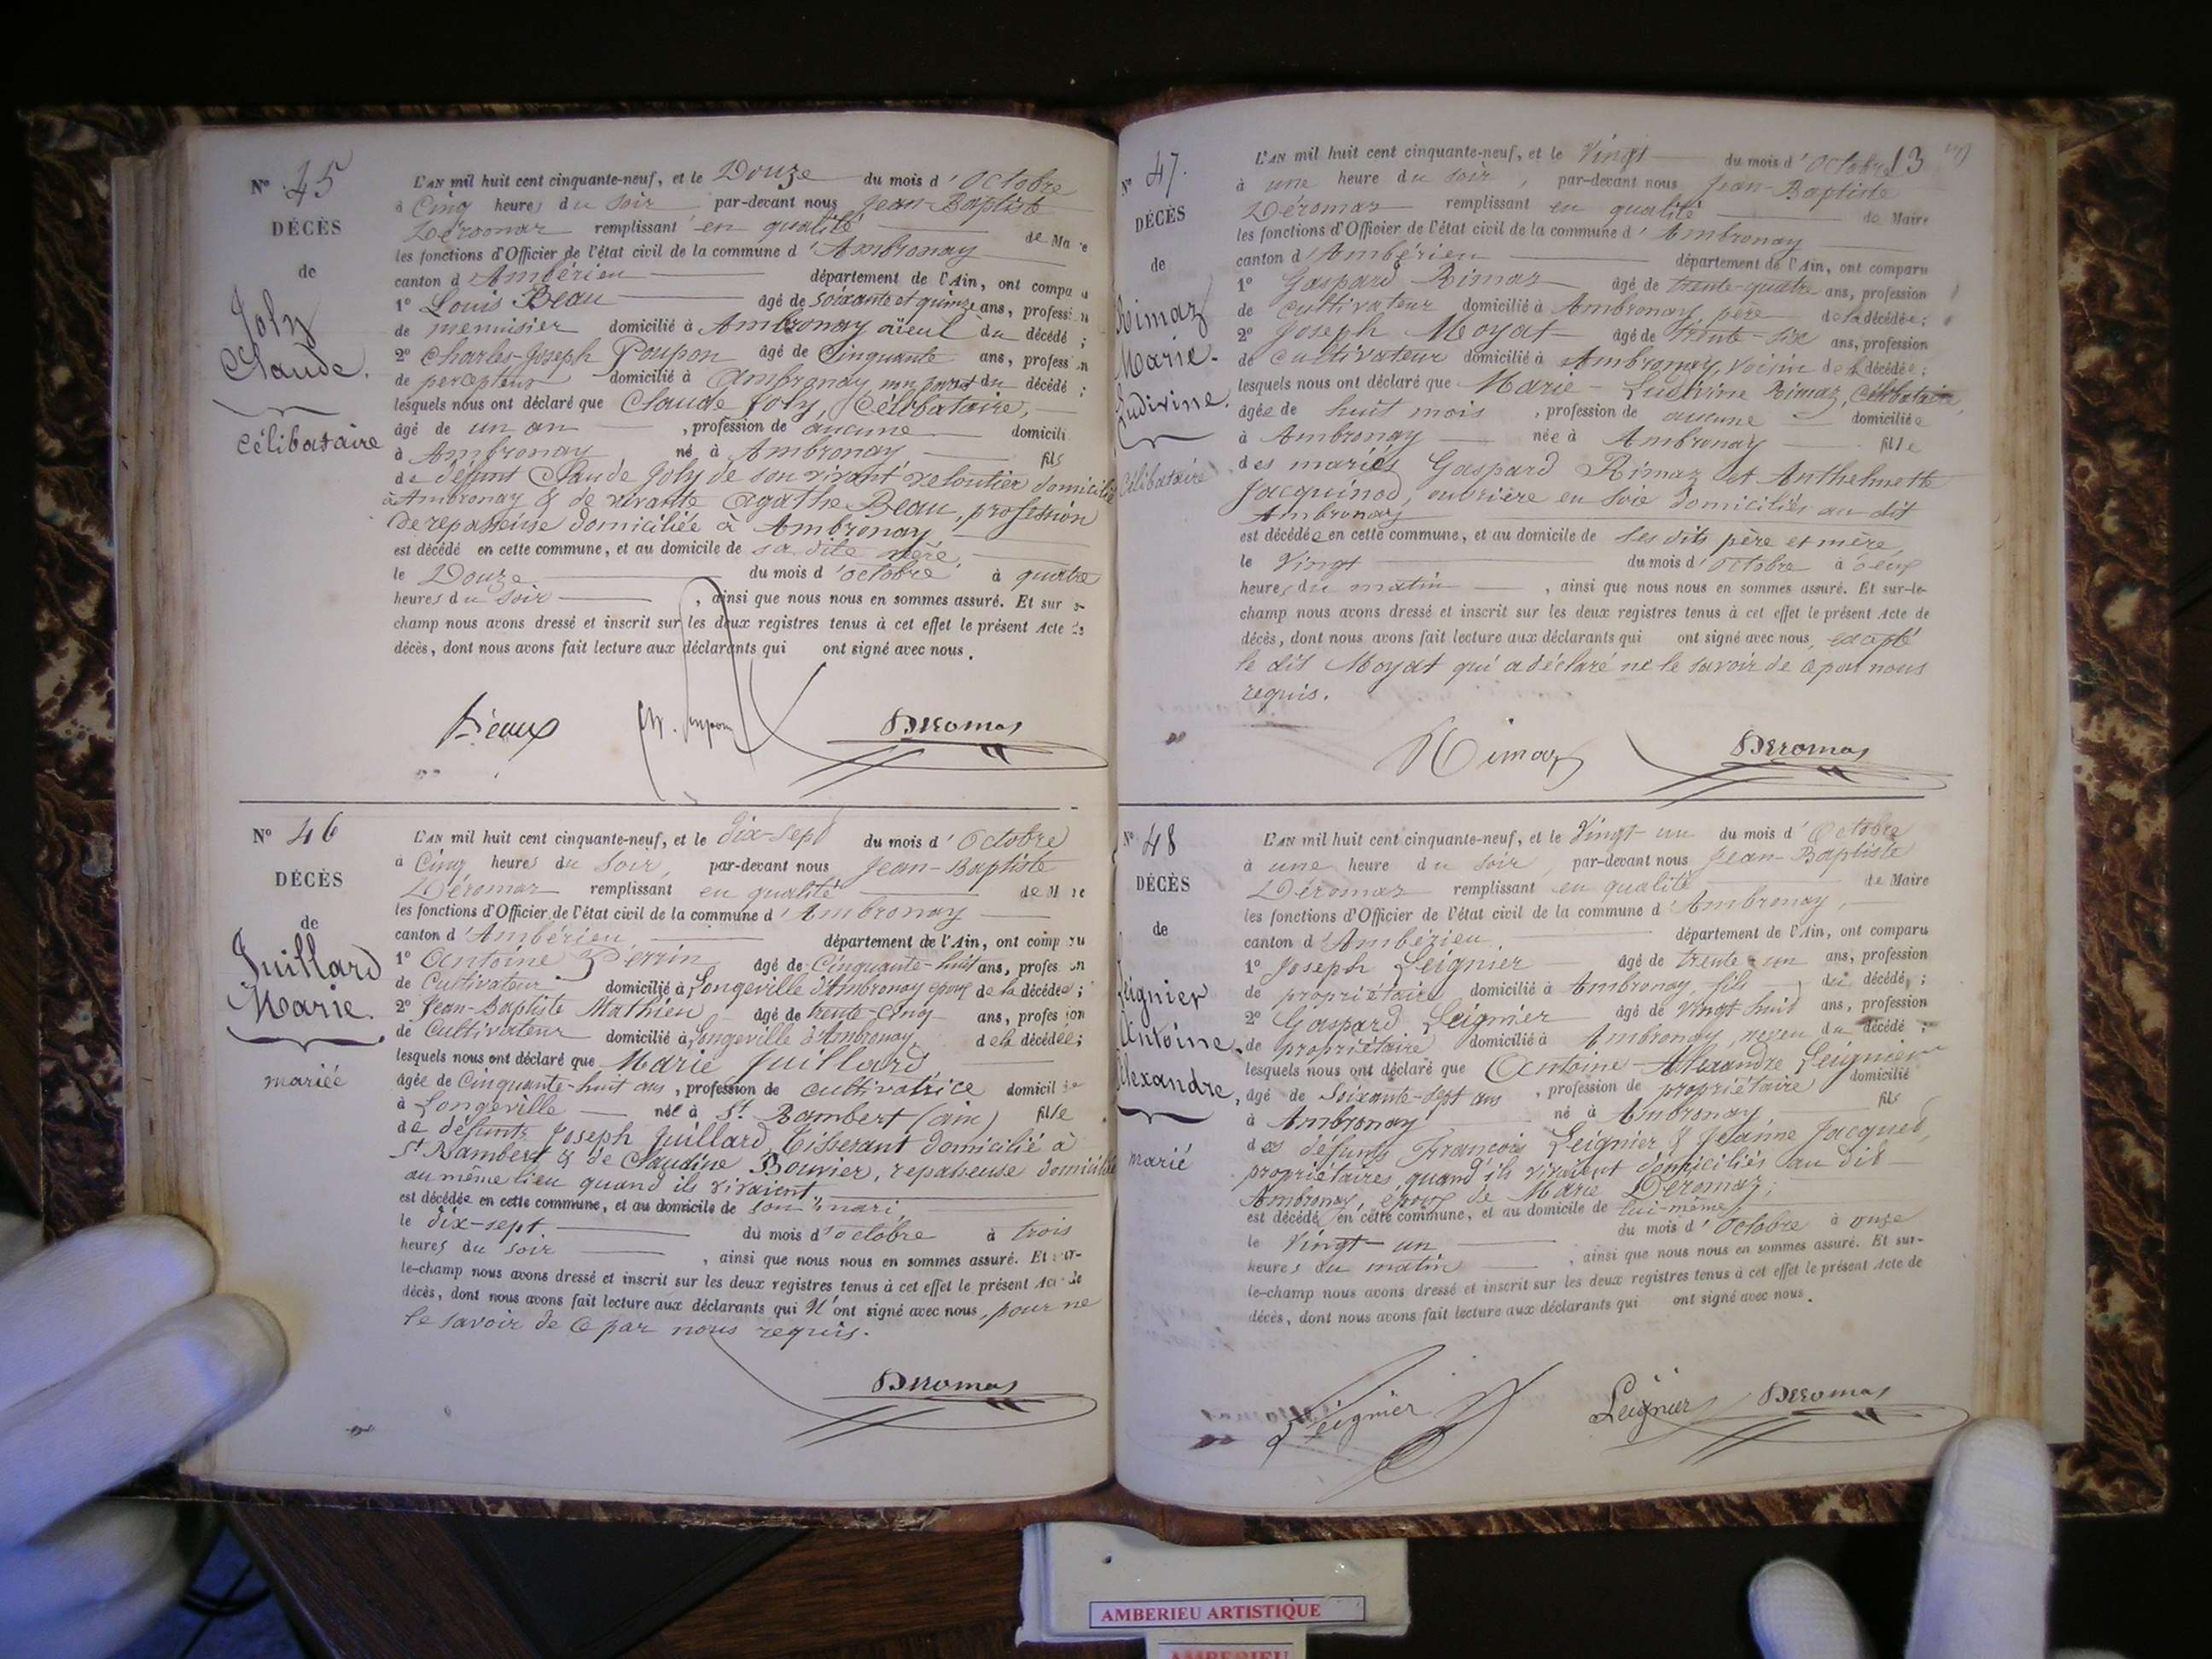 N° 45
DÉCÈS
de
Joly
Claude.
célibataire
L'AN mil huit cent cinquante-neuf, et le Douze du mois d'Octobre
à Cinq heures du soir par-devant nous Jean-Baptiste
Déromas remplissant en qualité de Ma e
les fonctions d'Officier de l'état civil de la commune d'Ambronay
canton d'Ambérieu département de l'Ain, ont compa u
1° Louis Beau âgé de soixante et quinze ans, professi n
de menuisier domicilié à Ambronay aïeul du décédé ;
2° Charles-Joseph Poupon âgé de Cinquante ans, profess n
de percepteur domicilié à Ambronay, non parent du décédé ;
lesquels nous ont déclaré que Claude Joly, Célibataire,
âgé de un an , profession de aucune domicili
à Ambronay né à Ambronay fils
de défunt Claude Joly de son vivant veloutier domicilié
à Ambronay & de vivante Agathe Beau, profession
de repasseuse domiciliée à Ambronay
est décédé en cette commune, et au domicile de sa dite mère,
le Douze du mois d'octobre à quatre
heures du soir , ainsi que nous nous en sommes assuré. Et sur
champ nous avons dressé et inscrit sur les deux registres tenus à cet effet le présent Acte de
décès, dont nous avons fait lecture aux déclarants qui ont signé avec nous.
Beaux Deromas
N° 46
DÉCÈS
de
Juillard
Marie.
mariée
L'AN mil huit cent cinquante-neuf, et le dix-sept du mois d'Octobre
à Cinq heures du soir, par-devant nous Jean-Baptiste
Déromas remplissant en qualité de M re
les fonctions d'Officier de l'état civil de la commune d'Ambronay
canton d'Ambérieu département de l'Ain, ont comp ru
1° Antoine Perrin âgé de Cinquante-huit ans, profes on
de Cultivateur domicilié à Longeville d'Ambronay époux de la décédée ;
2° Jean-Baptiste Mathieu âgé de trente-cinq ans, profes ion
de Cultivateur domicilié à Longeville d'Ambronay de la décédée ;
lesquels nous ont déclaré que Marie Juillard
âgée de Cinquante-huit ans , profession de cultivatrice domicil ée
à Longeville née à St Rambert (ain) fille
de défunts Joseph Juillard, Tisserant domicilié à
St Rambert & de Claudine Bouvier, repasseuse domiciliée
au même lieu quand ils vivaient,
est décédée en cette commune, et au domicile de son mari,
le dix-sept du mois d'octobre à trois
heures du soir , ainsi que nous nous en sommes assuré. Et sur-
le-champ nous avons dressé et inscrit sur les deux registres tenus à cet effet le présent Acte de
décès, dont nous avons fait lecture aux déclarants qui N'ont signé avec nous, pour ne
le savoir de ce par nous requis.
Deromas
13
N° 47.
DÉCÈS
de
Rimaz
Marie-
Ludivine.
Célibataire
L'AN mil huit cent cinquante-neuf, et le Vingt du mois d'Octobre
à une heure du soir , par-devant nous Jean-Baptiste
Déromas remplissant en qualité de Maire
les fonctions d'Officier de l'état civil de la commune d'Ambronay
canton d'Ambérieu département de l'Ain, ont comparu
1° Gaspard Rimaz âgé de trente-quatre ans, profession
de cultivateur domicilié à Ambronay, père de la décédée ;
2° Joseph Moyat âgé de trente-six ans, profession
de cultivateur domicilié à Ambronay, voisin de la décédée ;
lesquels nous ont déclaré que Marie-Ludivine Rimaz, Célibataire,
âgée de huit mois , profession de aucune domiciliée
à Ambronay née à Ambronay fille
des mariés Gaspard Rimaz et Anthelmette
Jacquinod, ouvrière en soie domiciliés au dit
Ambronay
est décédée en cette commune, et au domicile de ses dits père et mère,
le Vingt du mois d'Octobre à
heures du matin , ainsi que nous nous en sommes assuré. Et sur-le-
champ nous avons dressé et inscrit sur les deux registres tenus à cet effet le présent Acte de
décès, dont nous avons fait lecture aux déclarants qui ont signé avec nous, excepté
le dit Moyat qui a déclaré ne le savoir de ce par nous
requis.
Rimaz Deromas
N° 48
DÉCÈS
de
Leignier
Antoine-
Alexandre,
marié
L'AN mil huit cent cinquante-neuf, et le Vingt-un du mois d'Octobre
à une heure du soir, par-devant nous Jean-Baptiste
Déromas remplissant en qualité de Maire
les fonctions d'Officier de l'état civil de la commune d'Ambronay,
canton d'Ambérieu, département de l'Ain, ont comparu
1° Joseph Leignier âgé de trente-un ans, profession
de propriétaire domicilié à Ambronay, fils du décédé, ;
2° Gaspard Leignier âgé de vingt huit ans, profession
de propriétaire domicilié à Ambronay, neveu du décédé ;
lesquels nous ont déclaré que Antoine-Alexandre Leignier
âgé de Soixante-sept ans , profession de propriétaire domicilié
à Ambronay né à Ambronay fils
des défunts François Leignier & Jeanne Jacquet,
propriétaires, quand ils vivaient domiciliés au dit
Ambronay, époux de Marie Deromaz ;
est décédé en cette commune, et au domicile de lui-même,
le Vingt-un du mois d'Octobre à onze
heures du matin , ainsi que nous nous en sommes assuré. Et sur-
le-champ nous avons dressé et inscrit sur les deux registres tenus à cet effet le présent Acte de
décès, dont nous avons fait lecture aux déclarants qui ont signé avec nous.
Leignier Leignier Deromas
AMBERIEU ARTISTIQUE
AMBERIEU